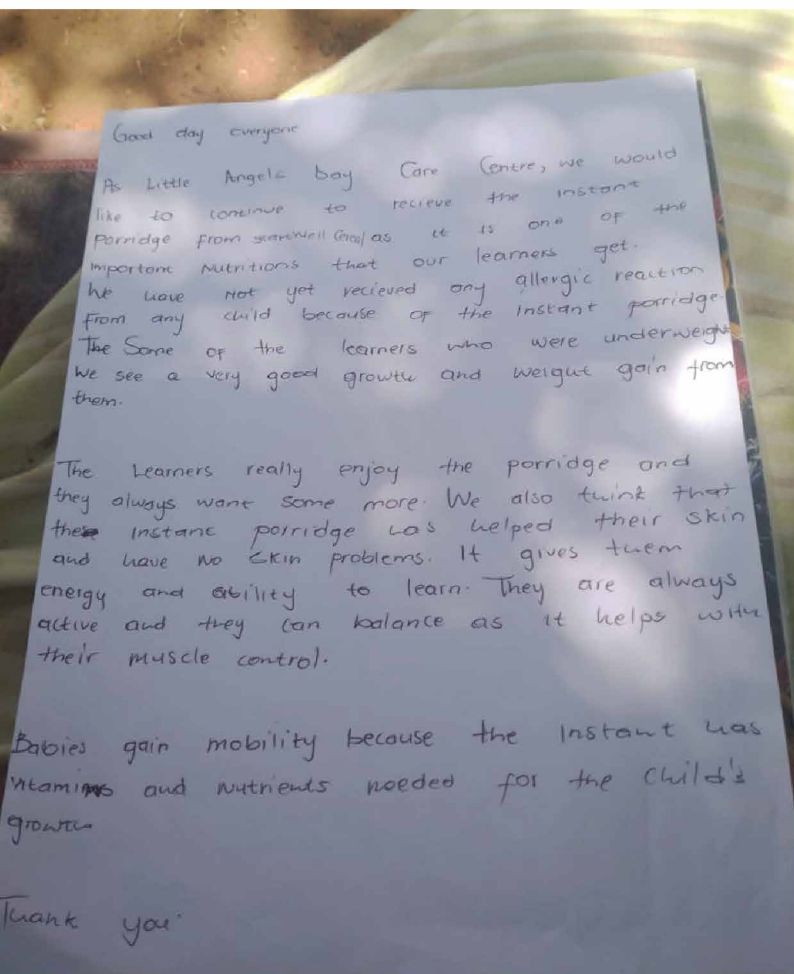 Good day everyone
As Little Angels Day Care Centre, we would
like to continue to recieve the instant
porridge from as it is one of the
important Nutritions that our learners get.
We have Not yet recieved any allergic reaction
from any child because of the instant porridge.
The Some of the learners who were underweight
We see a very good growth and weight gain from
them.
The Learners really enjoy the porridge and
they always want some more. We also think that
the instant porridge has helped their skin
and have no skin problems. It gives them
energy and ability to learn. They are always
active and they can balance as it helps with
their muscle control.
Babies gain mobility because the instant has
vitamins and nutrients needed for the child's
growth
Thank you.